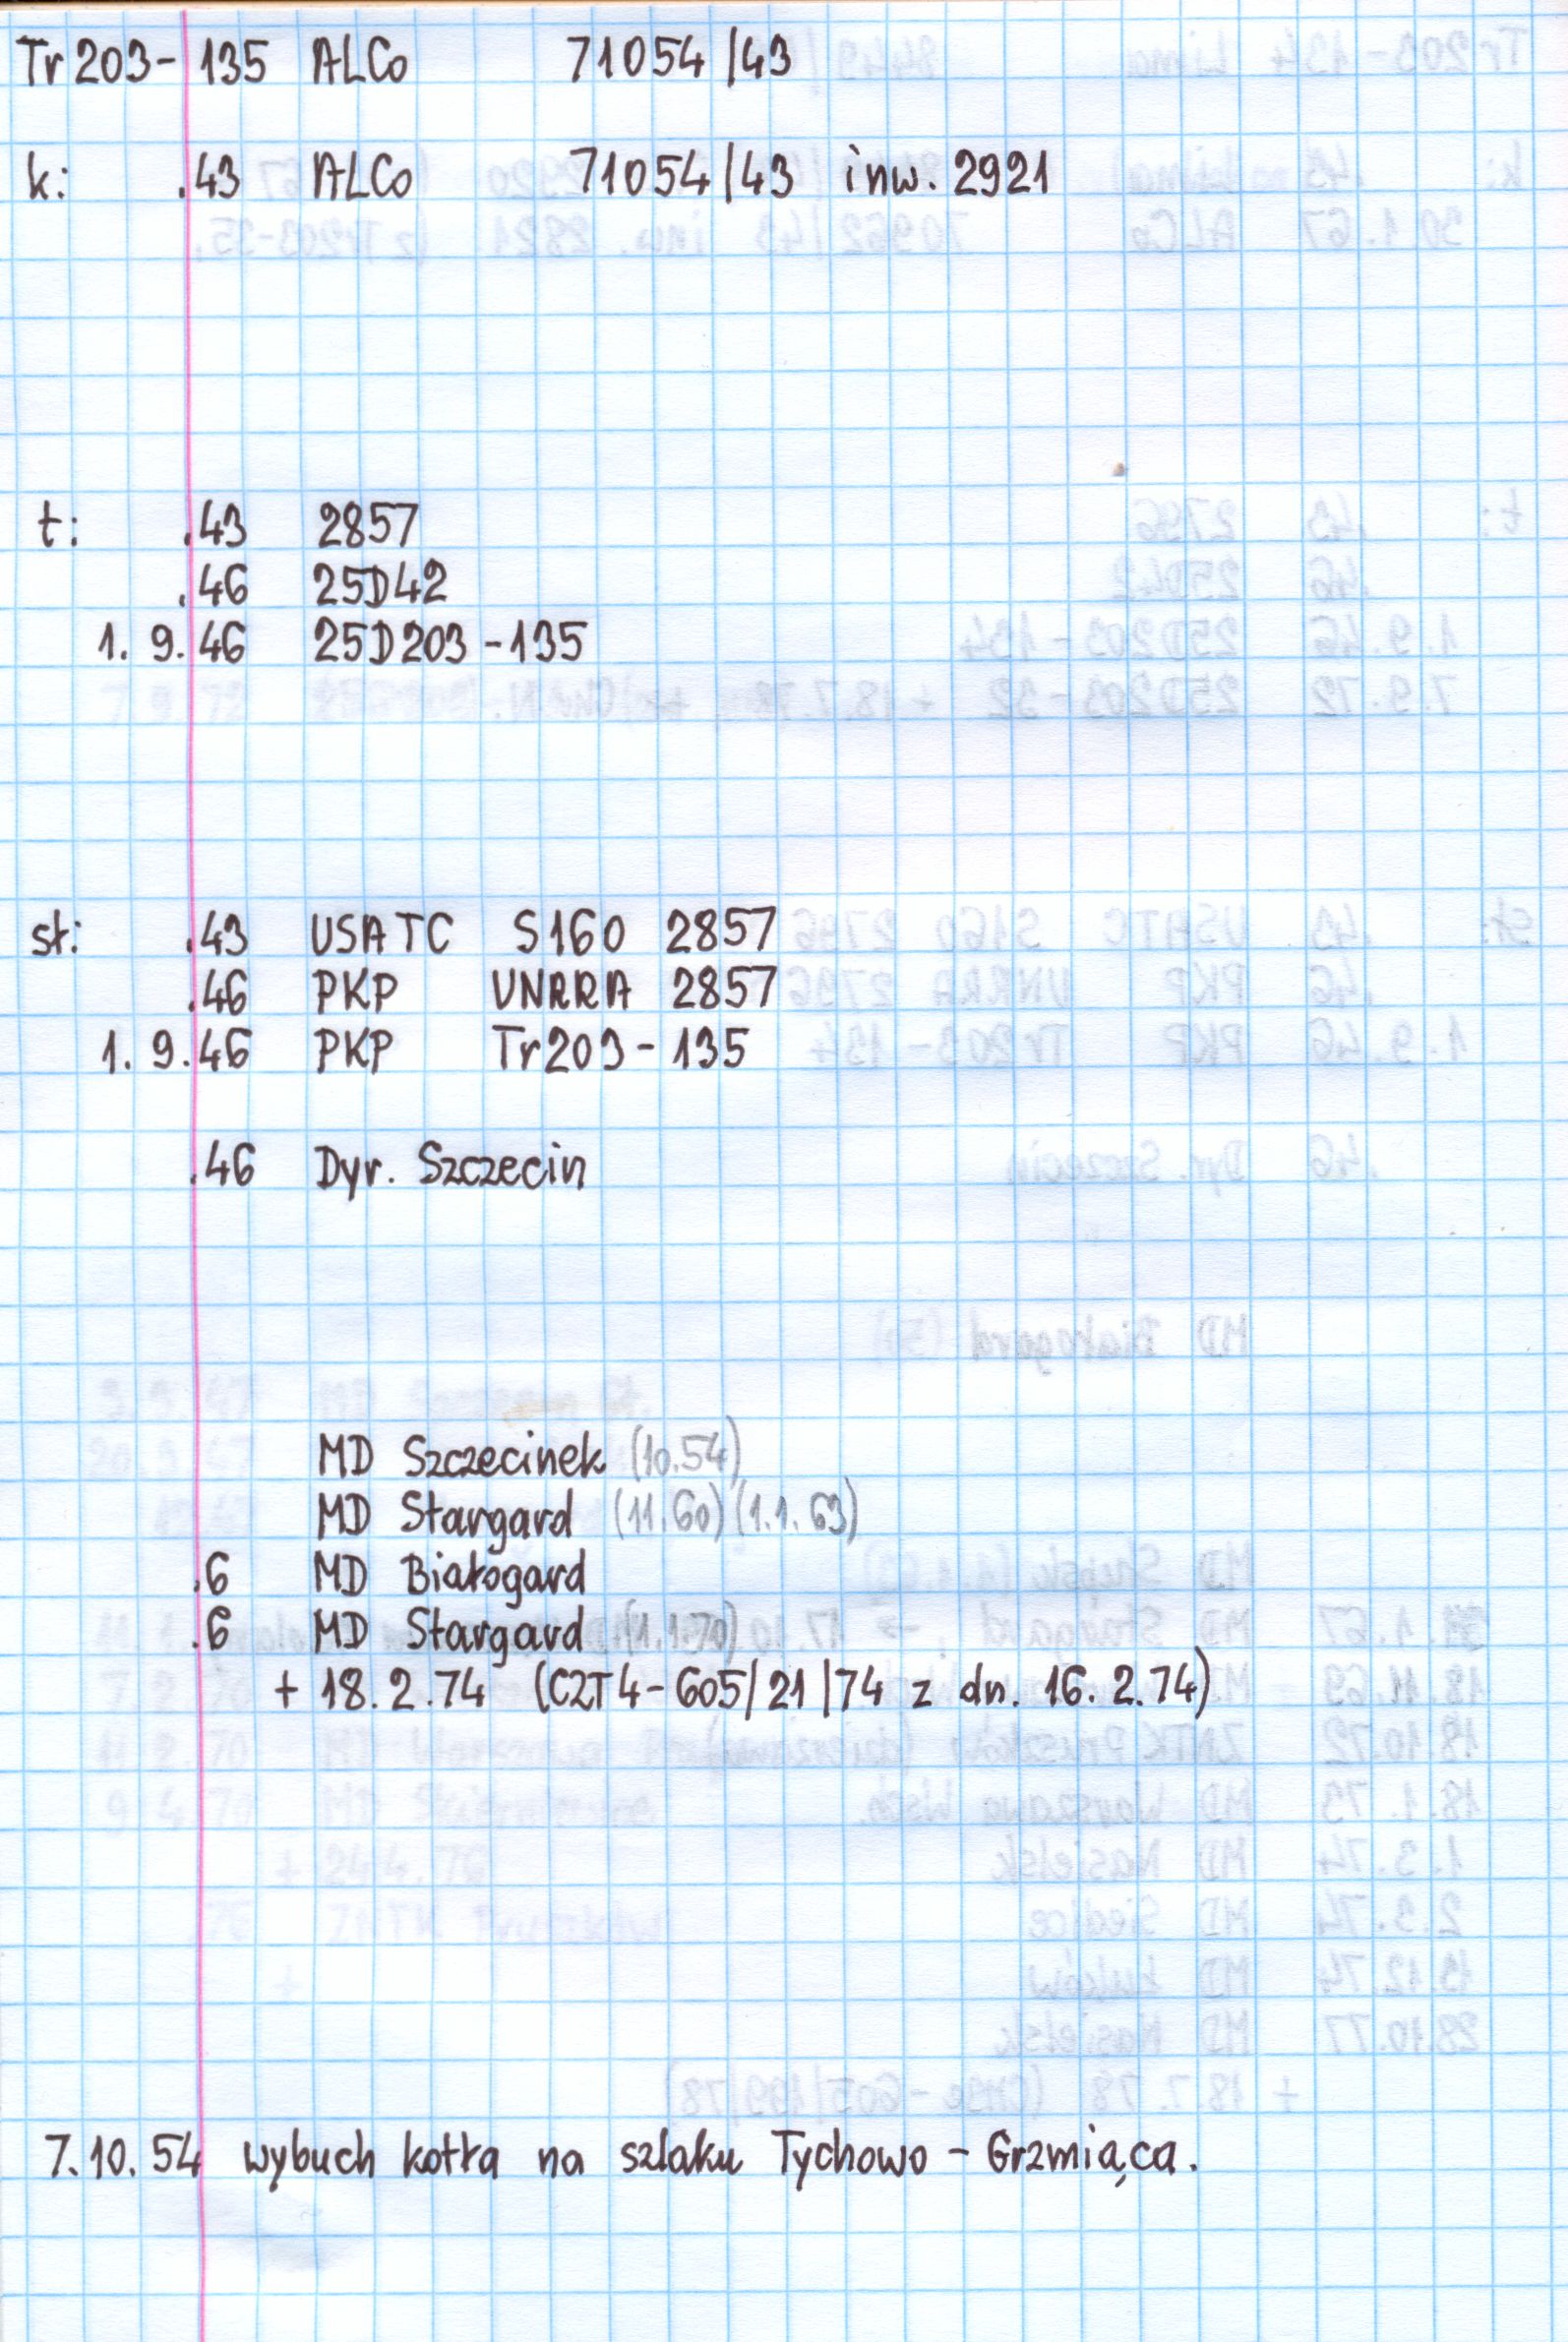 Tr203-135 ALCo 71054/43
k: .43 ALCo 71054/43 inw. 2921
t: .43 2857
.46 25D42
1. 9.46 25D203-135
st: .43 USATC S160 2857
.46 PKP UNRRA 2857
1. 9.46 PKP Tr203-135
.46 Dyr. Szczecin
MD Szczecinek (10.54)
MD Stargard (11.60) (1.1.63)
.6 MD Białogard
.6 MD Stargard (1.1.70)
+ 18.2.74 (CZT4-605/21/74 z dn. 16.2.74)
7.10.54 wybuch kotła na szlaku Tychowo - Grzmiąca.